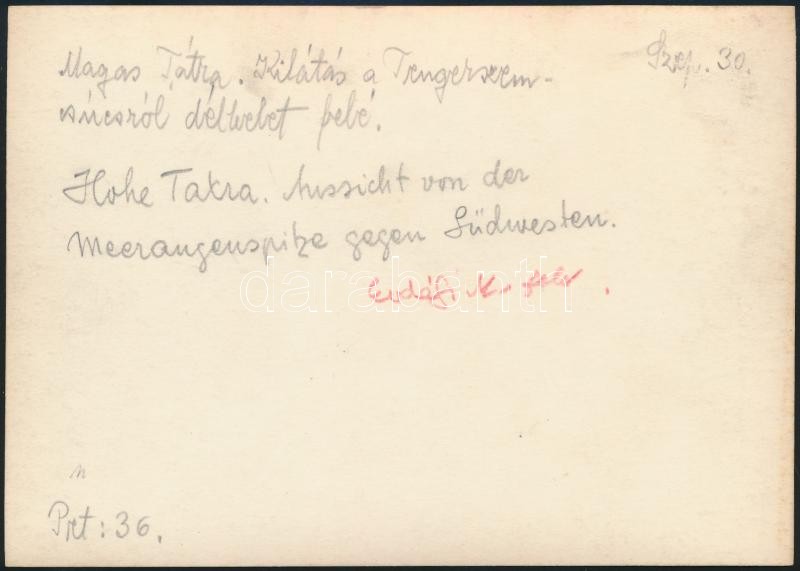 Szep. 30.
Magas Tátra. Kilátás a Tengerszem-
súcsról délwebet felé.
Hohe Tatra. Aussicht von der
Meeraugenspitze gegen Südwesten.
darabanth
Prt: 36.